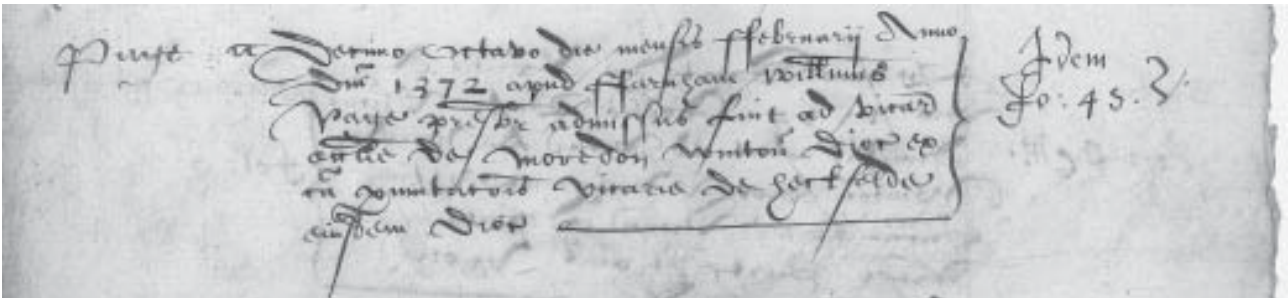 Page
Decimo Octavo die mensis ffebruarij Anno
Dni 1372 apud ffarnham Willmus
Page presbr admissus fuit ad vicar
ecclie de Moredon Winton Dioc ex
ca pmutacois vicarie de Heckfelde
eiusdem Dioc
Idem
fo: 45.